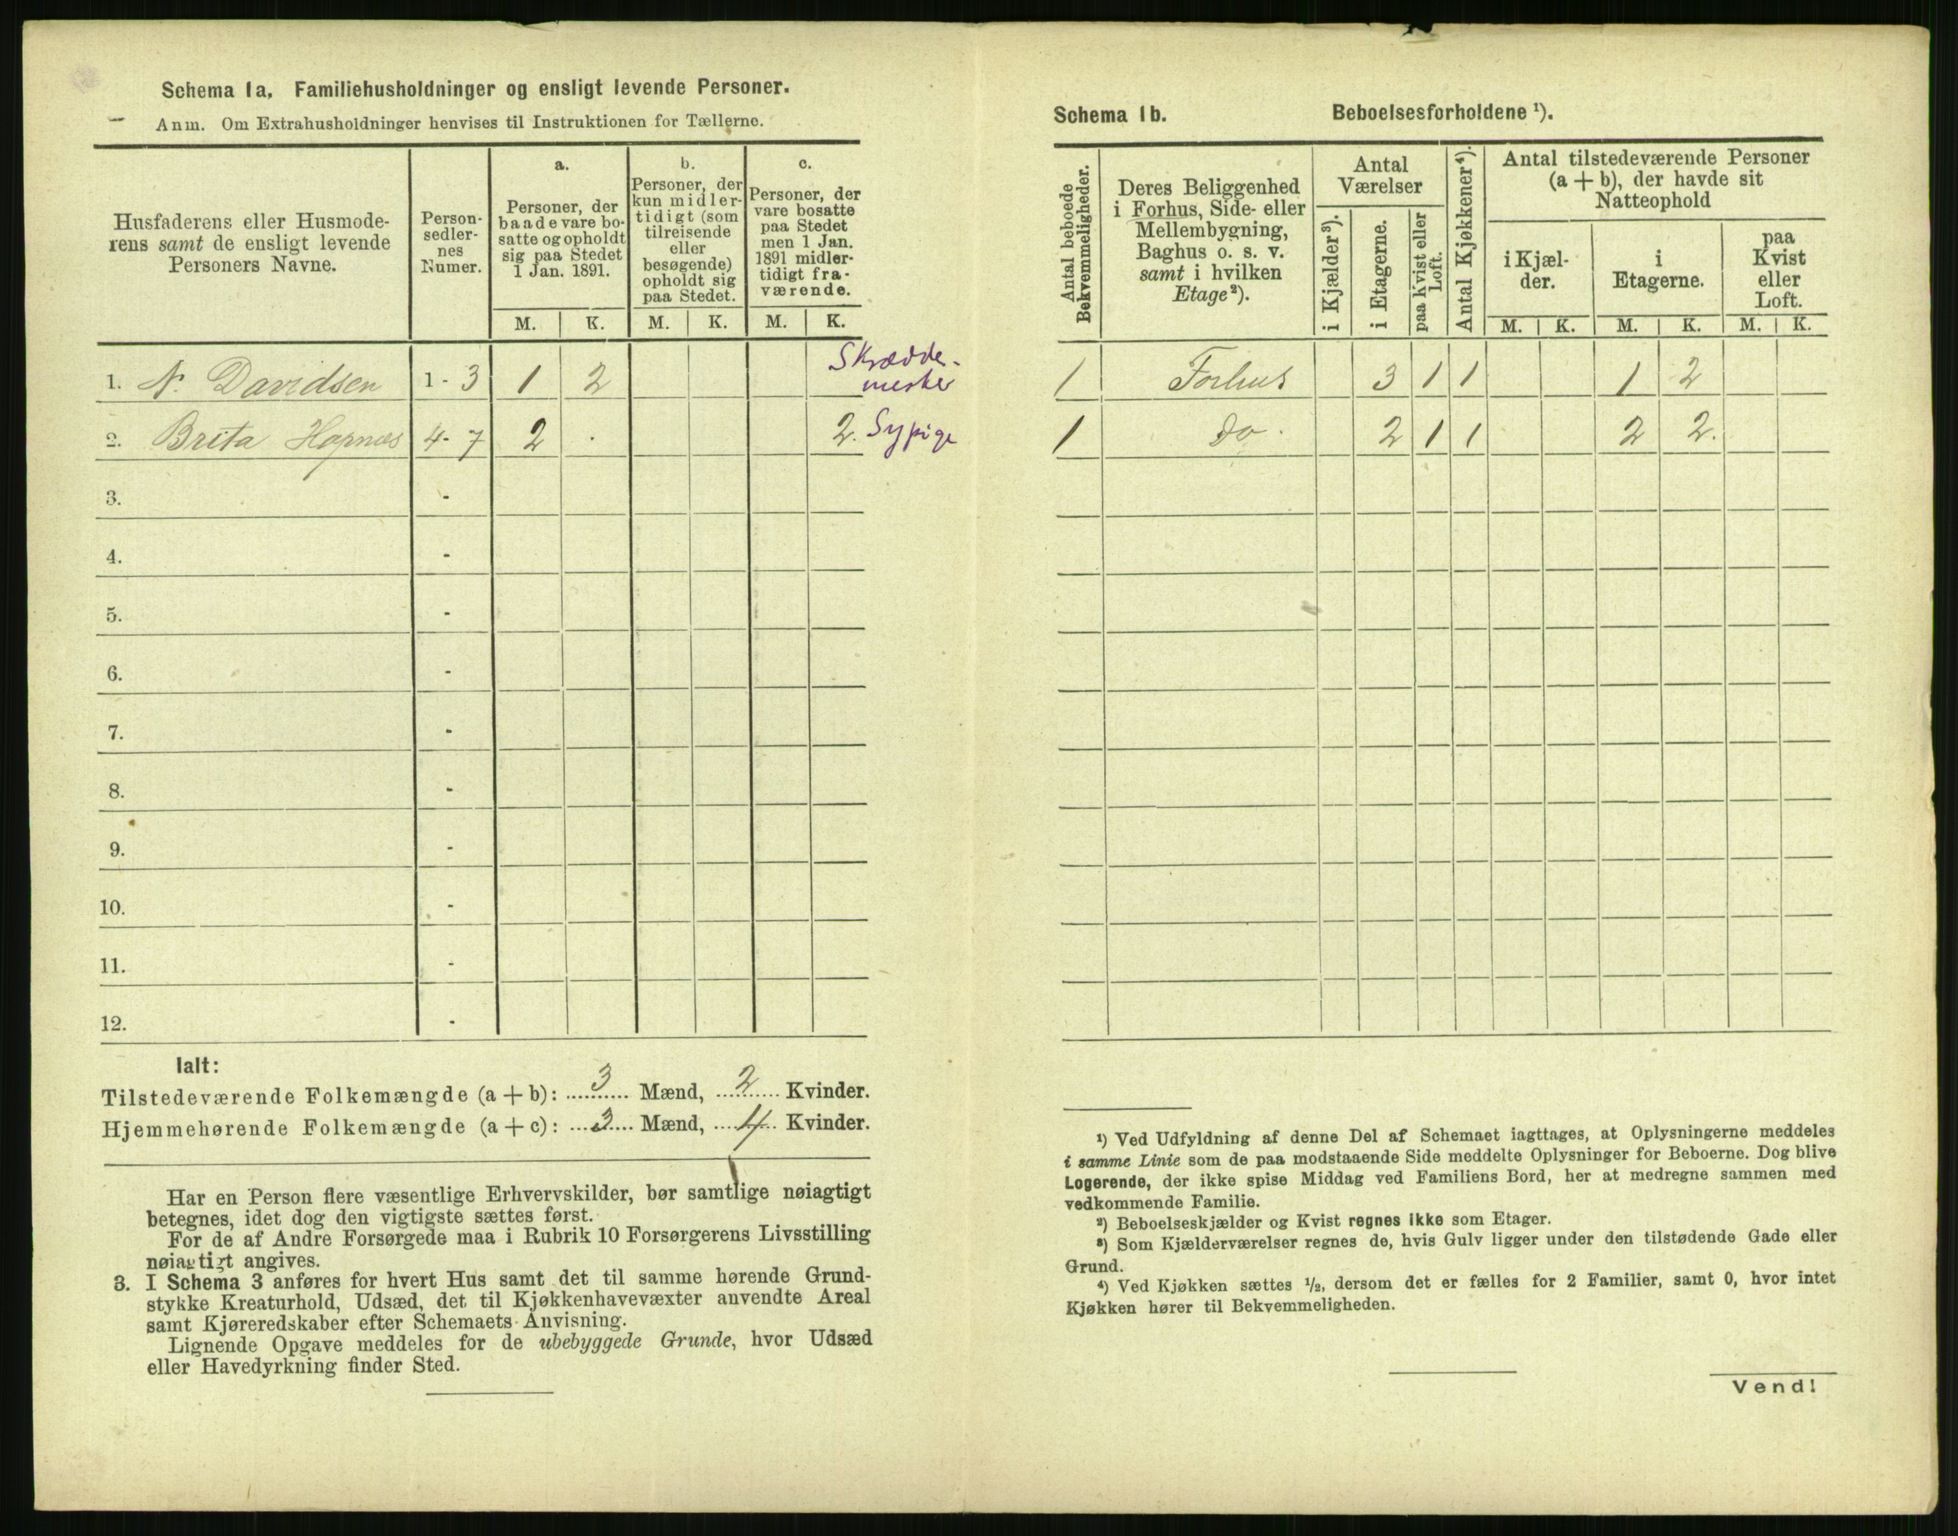 Schema 1a. Familiehusholdninger og ensligt levende Personer.
Anm. Om Extrahusholdninger henvises til Instruktionen for Tællerne.
Husfaderens eller Husmoderens samt de ensligt levende Personers Navne.
Personsedlernes Numer.
a.
Personer, der baade vare bosatte og opholdt sig paa Stedet 1 Jan. 1891.
b.
Personer, der kun midlertidigt (som tilreisende eller besøgende) opholdt sig paa Stedet.
c.
Personer, der vare bosatte paa Stedet men 1 Jan. 1891 midlertidigt fraværende.
M. K. M. K. M. K.
1. N. Davidsen 1 - 3 1 2 Skræddemester
2. Brita Hopnæs 4 - 7 2 . 2. Sypige
3. -
4. -
5. -
6. -
7. -
8. -
9. -
10. -
11. -
12. -
Ialt:
Tilstedeværende Folkemængde (a + b): 3 Mænd, 2 Kvinder.
Hjemmehørende Folkemængde (a + c): 3 Mænd, 4 Kvinder.
Har en Person flere væsentlige Erhvervskilder, bør samtlige nøiagtigt
betegnes, idet dog den vigtigste sættes først.
For de af Andre Forsørgede maa i Rubrik 10 Forsørgerens Livsstilling
nøiagtigt angives.
3. I Schema 3 anføres for hvert Hus samt det til samme hørende Grund-
stykke Kreaturhold, Udsæd, det til Kjøkkenhavevæxter anvendte Areal
samt Kjøreredskaber efter Schemaets Anvisning.
Lignende Opgave meddeles for de ubebyggede Grunde, hvor Udsæd
eller Havedyrkning finder Sted.
Schema 1b. Beboelsesforholdene ¹).
Antal beboede Bekvemmeligheder.
Deres Beliggenhed i Forhus, Side- eller Mellembygning, Baghus o. s. v. samt i hvilken Etage²).
Antal Værelser
i Kjælder³).
i Etagerne.
paa Kvist eller Loft.
Antal Kjøkkener⁴).
Antal tilstedeværende Personer (a + b), der havde sit Natteophold
i Kjælder.
i Etagerne.
paa Kvist eller Loft.
M. K. M. K. M. K.
1 Forhus 3 1 1 1 2
1 do. 2 1 1 2 2.
¹) Ved Udfyldning af denne Del af Schemaet iagttages, at Oplysningerne meddeles
i samme Linie som de paa modstaaende Side meddelte Oplysninger for Beboerne. Dog blive
Logerende, der ikke spise Middag ved Familiens Bord, her at medregne sammen med
vedkommende Familie.
²) Beboelseskjælder og Kvist regnes ikke som Etager.
³) Som Kjælderværelser regnes de, hvis Gulv ligger under den tilstødende Gade eller
Grund.
⁴) Ved Kjøkken sættes ½, dersom det er fælles for 2 Familier, samt 0, hvor intet
Kjøkken hører til Bekvemmeligheden.
Vend!